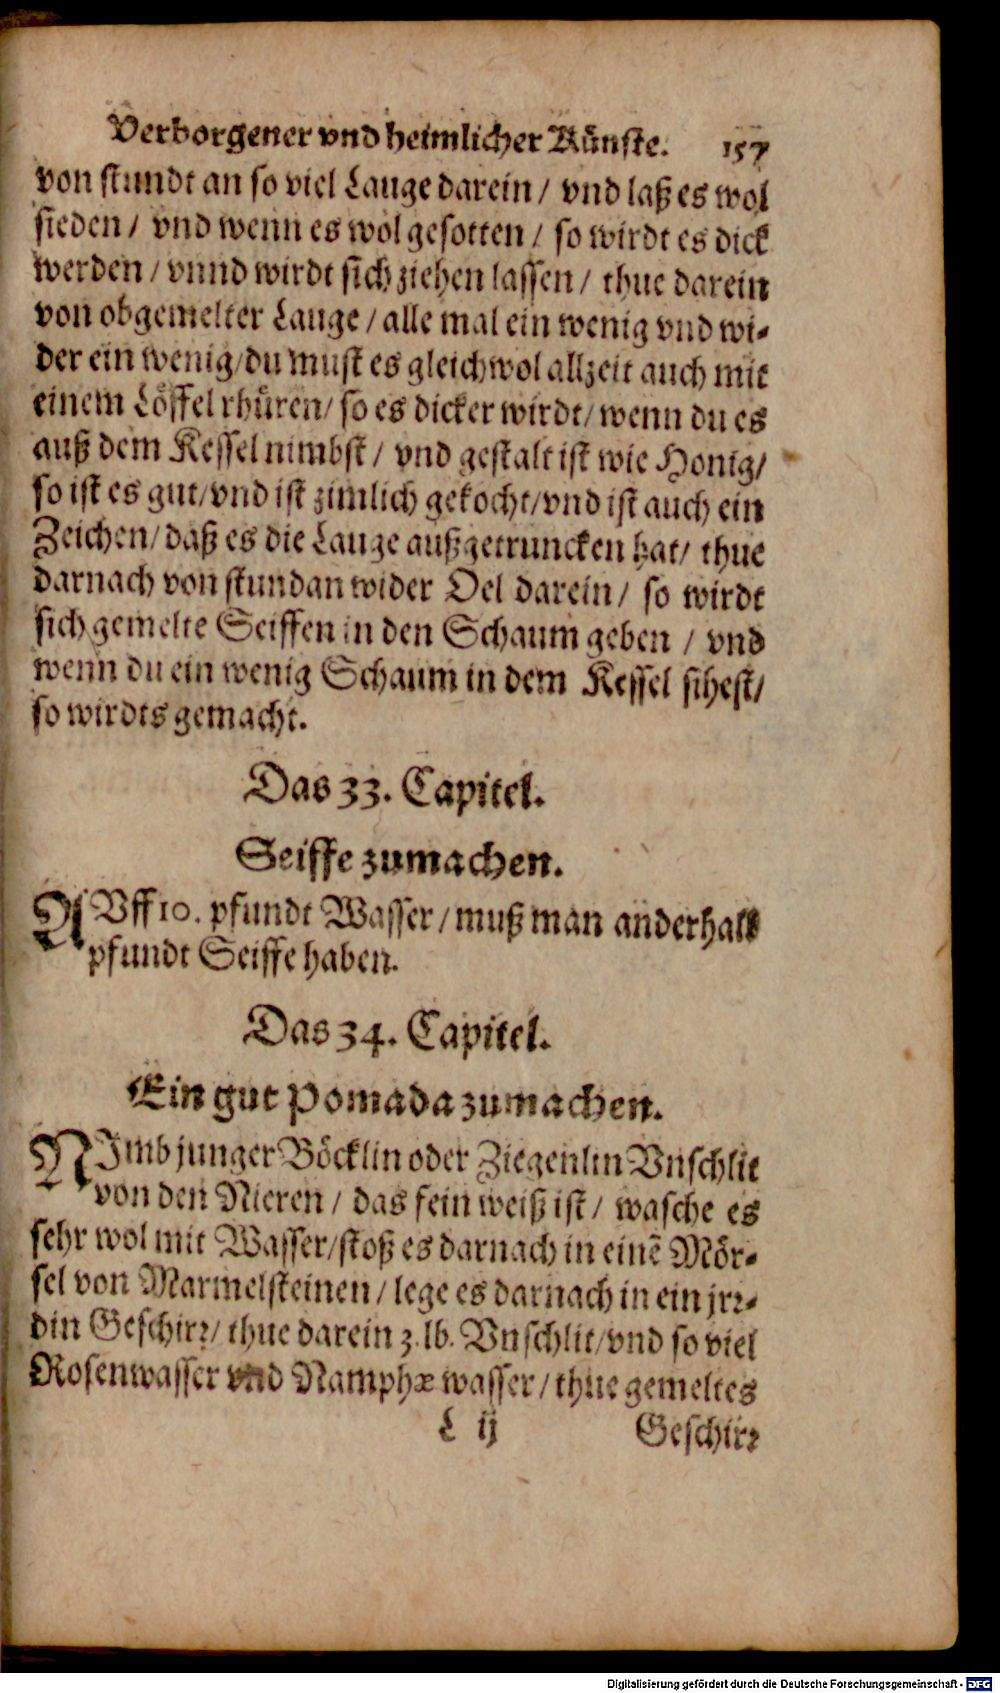 Verborgener vnd heimlicher Künste. 157
von stundt an so viel Lauge darein / vnd laß es wol
sieden / vnd wenn es wol gesotten / so wirdt es dick
werden / vnnd wirdt sich ziehen lassen / thue darein
von obgemelter Lauge / alle mal ein wenig vnd wi-
der ein wenig / du must es gleichwol allzeit auch mit
einem Löffel rhüren / so es dicker wirdt / wenn du es
auß dem Kessel nimbst / vnd gestalt ist wie Honig /
so ist es gut / vnd ist zimlich gekocht / vnd ist auch ein
Zeichen / daß es die Lauge außgetruncken hat / thue
darnach von stundan wider Oel darein / so wirdt
sich gemelte Seiffen in den Schaum geben / vnd
wenn du ein wenig Schaum in dem Kessel sihest /
so wirdts gemacht.
Das 33. Capitel.
Seiffe zumachen.
AVff 10. pfundt Wasser / muß man anderhalb
pfundt Seiffe haben.
Das 34. Capitel.
Ein gut Pomada zumachen.
NJmb junger Böcklin oder Ziegenlin Vnschlit
von den Nieren / das fein weiß ist / wasche es
sehr wol mit Wasser / stoß es darnach in einē Mör-
sel von Marmelsteinen / lege es darnach in ein jrr-
din Geschirr / thue darein 3. lb. Vnschlit / vnd so viel
Rosenwasser vnd Namphæ wasser / thue gemeltes
L ij Geschirr
Digitalisierung gefördert durch die Deutsche Forschungsgemeinschaft - DFG